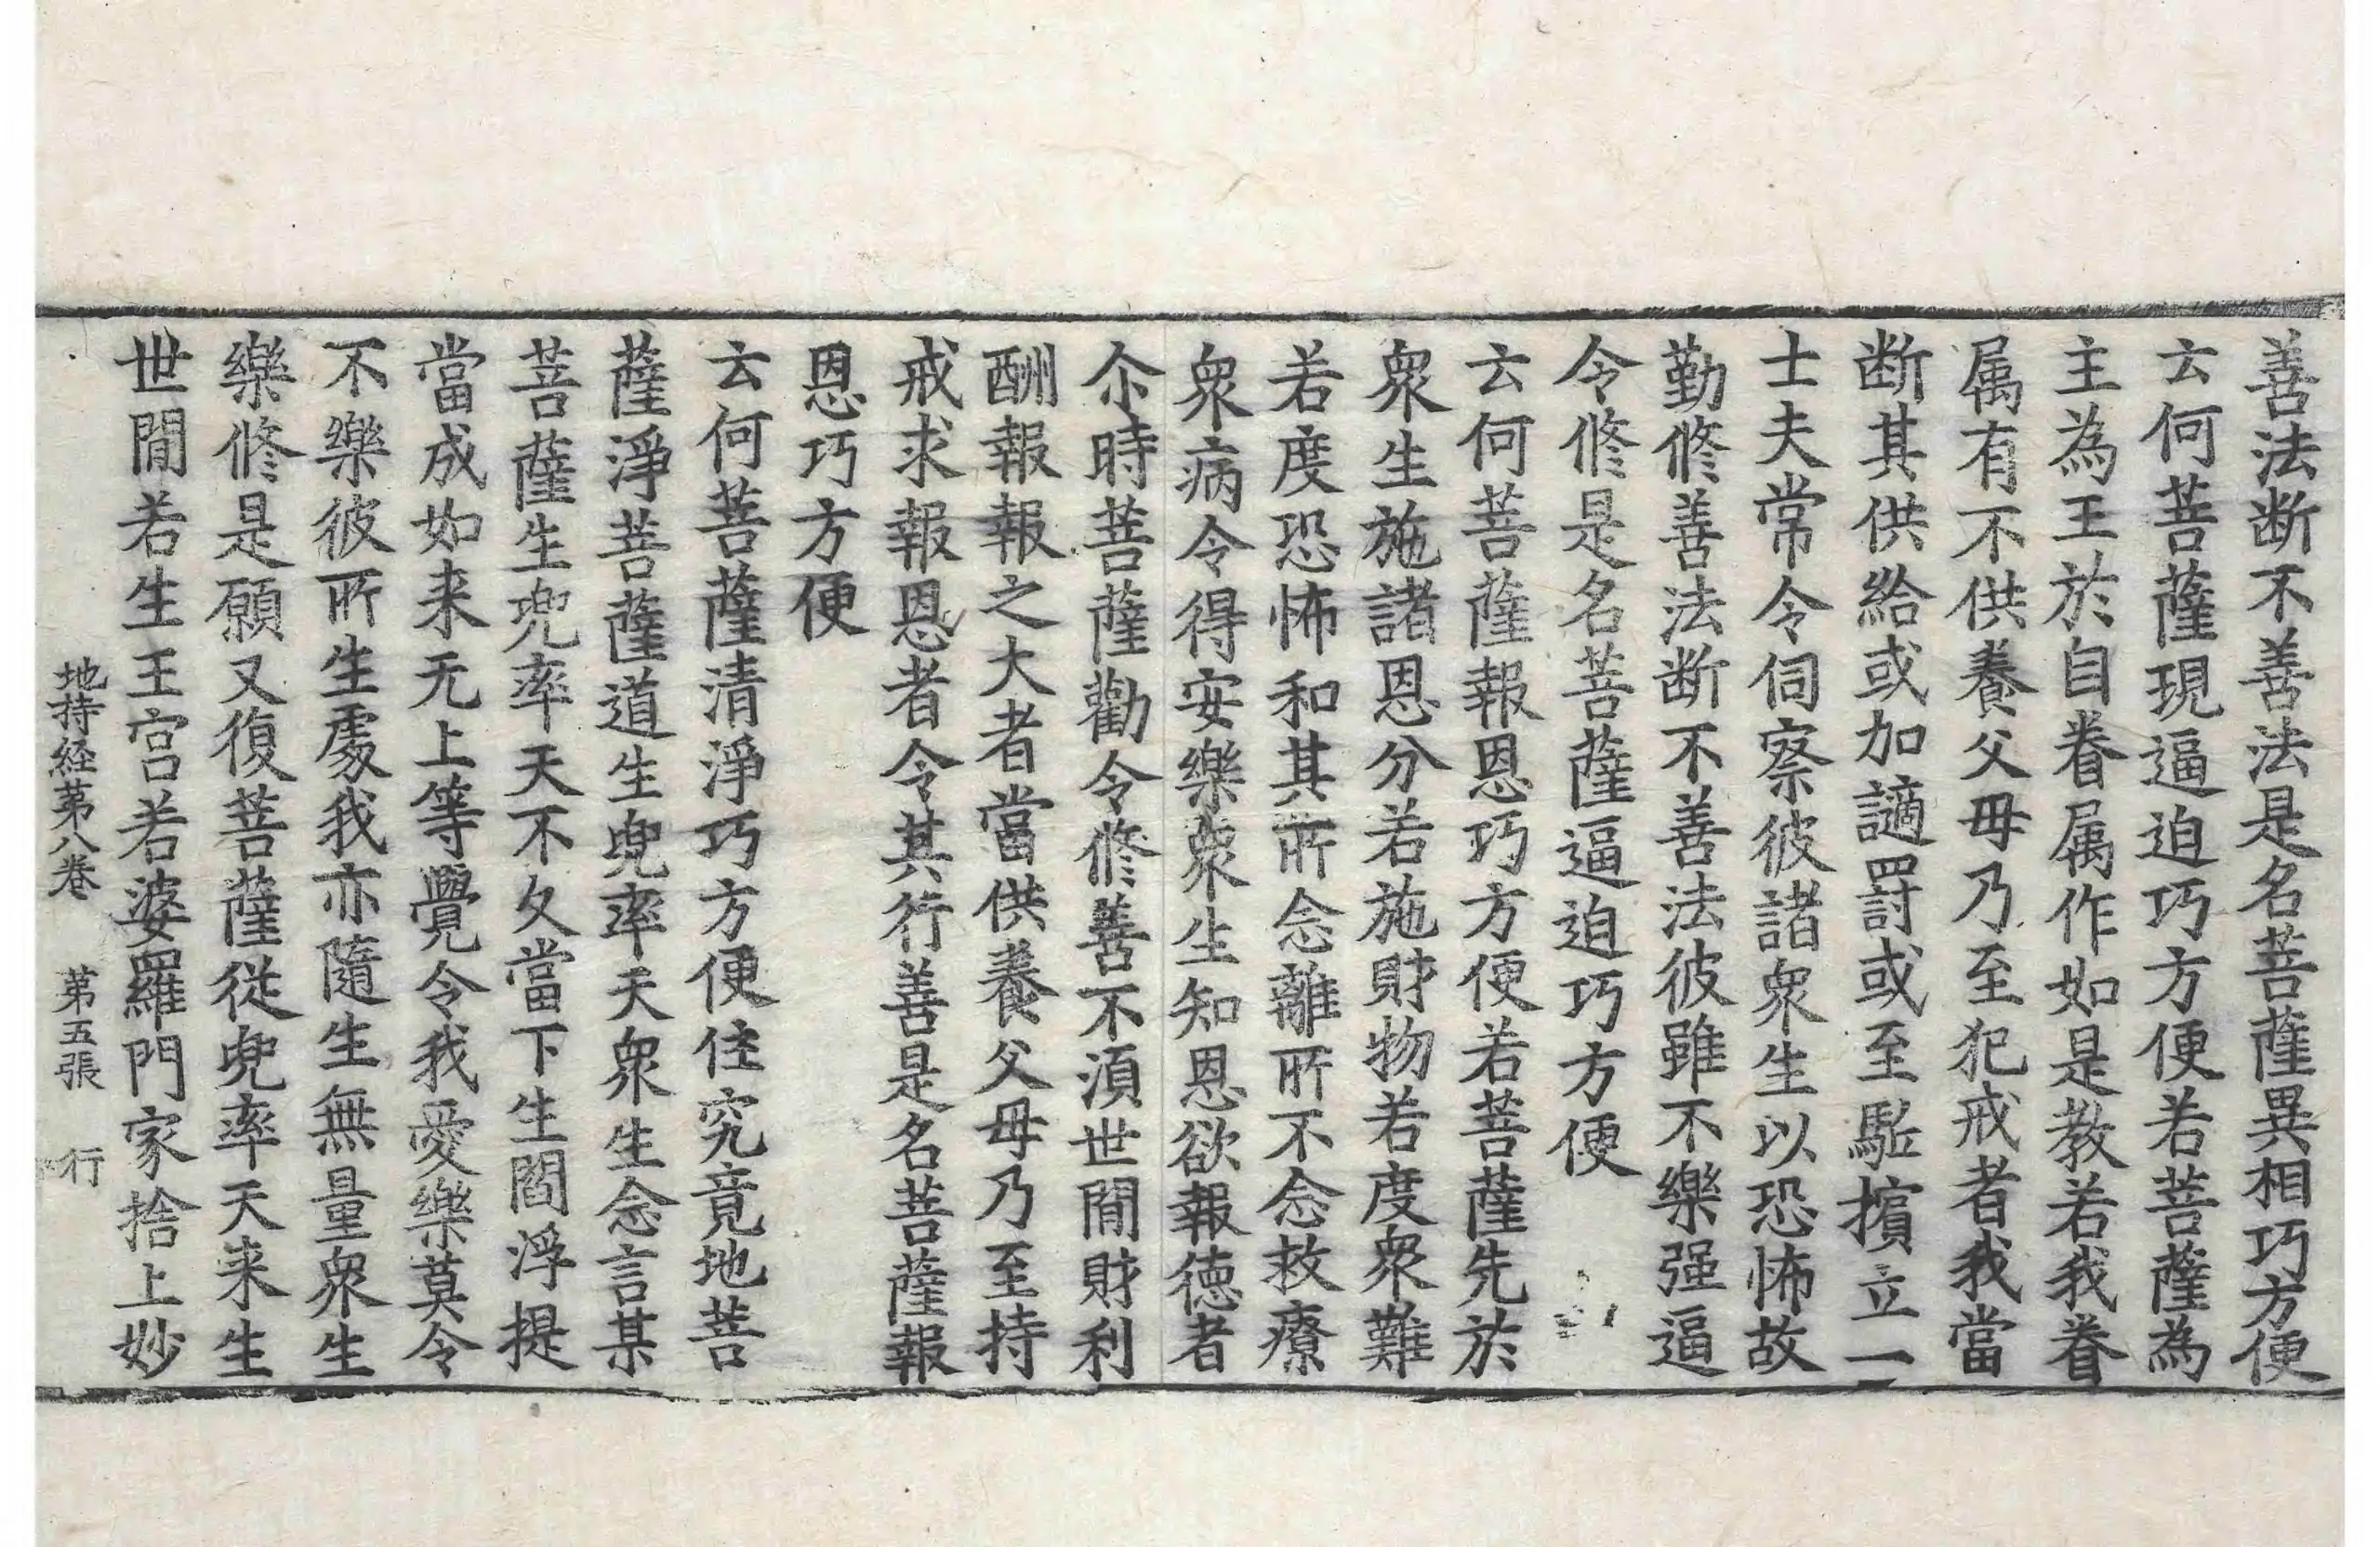 善法断不善法是名菩薩異相巧方便
云何菩薩現逼迫巧方便若菩薩為
主為王於自眷属作如是教若我眷
属有不供養父母乃至犯戒者我當
断其供給或加謫罸或至駈擯立一
士夫常令伺察彼諸衆生以恐怖故
勤修善法断不善法彼雖不樂强逼
令修是名菩薩逼迫巧方便
云何菩薩報恩巧方便若菩薩先於
衆生施諸恩分若施財物若度衆難
若度恐怖和其所念離所不念救療
衆病令得安樂衆生知恩欲報徳者
尒時菩薩勸令修善不湏世間財利
酬報報之大者當供養父母乃至持
戒求報恩者令其行善是名菩薩報
恩巧方便
云何菩薩清淨巧方便住究竟地菩
薩淨菩薩道生兜率天衆生念言某
菩薩生兜率天不久當下生閻浮提
當成如来无上等覺令我愛樂莫令
不樂彼所生處我亦隨生無量衆生
樂修是願又復菩薩從兜率天来生
世間若生王宫若婆羅門家捨上妙
地持経第八卷 第五張 行